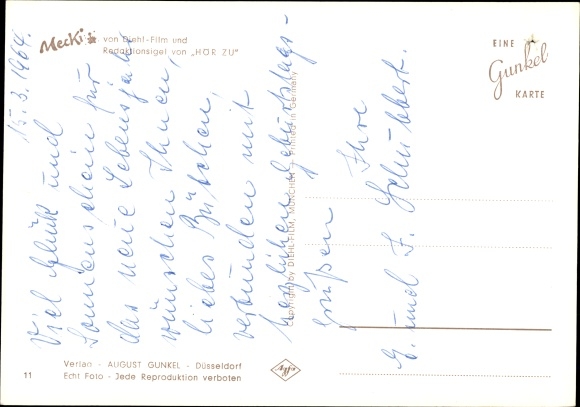 Mecki von Diehl-Film und
Redaktionsigel von „HÖR ZU"
EINE
Gunkel
KARTE
15.3.1964.
Viel Glück und
Sonnenschein für
das neue Lebensjahr
wünschen Ihnen,
liebes
verbunden mit
herzlichen Geburtstags-
grüßen
Ihre
E. und F. Schubbert.
Copyright by DIEHL-FILM, MÜNCHEN - Printed in Germany
Verlag - AUGUST GUNKEL - Düsseldorf
11 Echt Foto - Jede Reproduktion verboten
Agfa